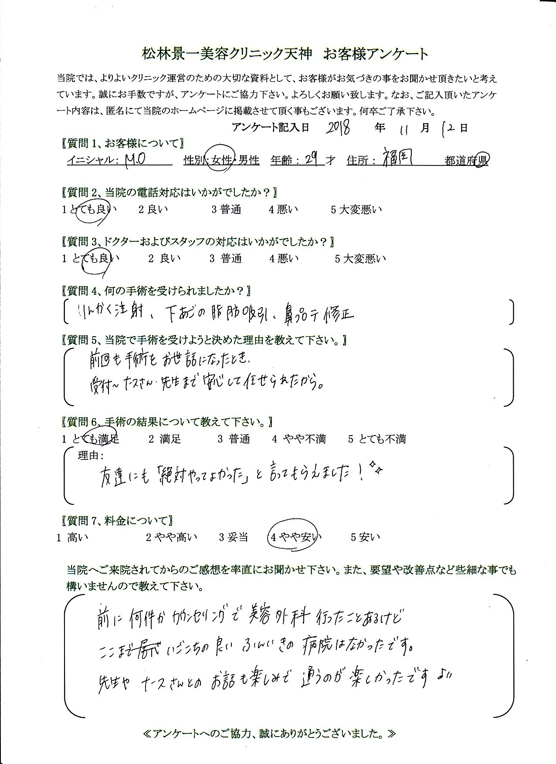 松林景一美容クリニック天神　お客様アンケート
当院では、よりよいクリニック運営のための大切な資料として、お客様がお気づきの事をお聞かせ頂きたいと考え
ています。誠にお手数ですが、アンケートにご協力下さい。よろしくお願い致します。なお、ご記入頂いたアンケ
ート内容は、匿名にて当院のホームページに掲載させて頂く事もございます。何卒ご了承下さい。
アンケート記入日　2018　年　11　月　12　日
〖質問 1、お客様について〗
イニシャル： M.O　性別：女性・男性　年齢：29 才　住所：　福岡　都道府県
〖質問 2、当院の電話対応はいかがでしたか？〗
1 とても良い　2 良い　3 普通　4 悪い　5 大変悪い
〖質問 3、ドクターおよびスタッフの対応はいかがでしたか？〗
1 とても良い　2 良い　3 普通　4 悪い　5 大変悪い
〖質問 4、何の手術を受けられましたか？〗
りんかく注射、下あごの脂肪吸引、鼻プロテ修正
〖質問 5、当院で手術を受けようと決めた理由を教えて下さい。〗
前回も手術もお世話になったとき、
受付〜ナースさん・先生まで安心して任せられたから。
〖質問 6、手術の結果について教えて下さい。〗
1 とても満足　2 満足　3 普通　4 やや不満　5 とても不満
理由：
友達にも「絶対やってよかった」と言ってもらえました！
〖質問 7、料金について〗
1 高い　2 やや高い　3 妥当　4 やや安い　5 安い
当院へご来院されてからのご感想を率直にお聞かせ下さい。また、要望や改善点など些細な事でも
構いませんので教えて下さい。
前に何件かカウンセリングで美容外科行ったことあるけど
ここまでいごこちの良いふんいきの病院はなかったです。
先生やナースさんとのお話も楽しみで通うのが楽しかったです
≪アンケートへのご協力、誠にありがとうございました。≫